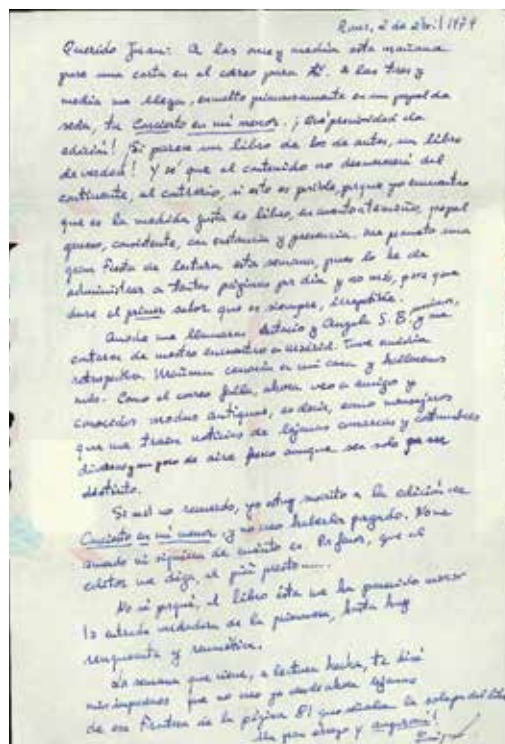 2 de abril 1979
Querido Juan: A las once y media esta mañana
puse una carta en el correo para ti. A las tres y
media me llega, envuelto primorosamente en un papel de
seda, tu Concierto en mi menor. ¡Qué preciosidad de
edición! ¡Si parece un libro de los de antes, un libro
de verdad! Y sé que el contenido no desmerecerá del
continente, al contrario, si esto es posible, porque yo encuentro
que es la medida justa de libro, en cuanto a tamaño, papel
grueso, consistente, con sustancia y presencia. Me prometo una
gran fiesta de lectura esta semana, pues lo he de
administrar a tantas páginas por día y no más, para que
dure el primer sabor que es siempre, irrepetible.
Anoche me llamaron Antonio y Angela S. B. y me
enteraron de vuestro encuentro en Madrid. Tuve envidia
retrospectiva. Mañana cenarán en mi casa y hablaremos
más. Como el correo falla, ahora veo a amigos y
conocidos modus antiquus, es decir, como mensajeros
que me traen noticias de lejanas comarcas y costumbres
diversas y un poco de aire fresco aunque sea solo por ser
distinto.
Si mal no recuerdo, yo estoy suscrito a la edición de
Concierto en mi menor y no creo haberla pagado. No me
acuerdo ni siquiera de cuánto es. Por favor, que el
editor me diga, al più presto.....
No sé por qué, el libro éste me ha parecido
la entrada verdadera de la primavera, hasta hoy
renqueante y reumática.
La semana que viene, a lectura hecha, te diré
mis impresiones que no creo ya desde ahora lejanas
de esa de la página 81 que señala la solapa del libro
Un gran abrazo y